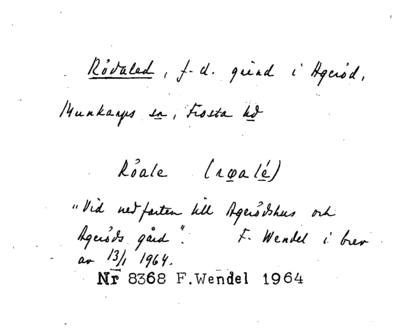 Rövaled, f.d. grind i Ageröd,
Munkarps sn, Frosta hd
Röale (røalé)
"Vid nedfarten till Agerödshus och
Ageröds gård". F. Wendel i brev
av 13/1 1964.
Nr 8368 F.Wendel 1964